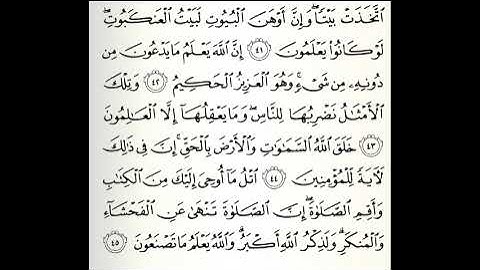 ٱتَّخَذَتْ بَيْتًا ۖ وَإِنَّ أَوْهَنَ ٱلْبُيُوتِ لَبَيْتُ ٱلْعَنكَبُوتِ ۖ
لَوْ كَانُوا۟ يَعْلَمُونَ ٤١ إِنَّ ٱللَّهَ يَعْلَمُ مَا يَدْعُونَ مِن
دُونِهِۦ مِن شَىْءٍ ۚ وَهُوَ ٱلْعَزِيزُ ٱلْحَكِيمُ ٤٢ وَتِلْكَ
ٱلْأَمْثَٰلُ نَضْرِبُهَا لِلنَّاسِ ۖ وَمَا يَعْقِلُهَآ إِلَّا ٱلْعَٰلِمُونَ
٤٣ خَلَقَ ٱللَّهُ ٱلسَّمَٰوَٰتِ وَٱلْأَرْضَ بِٱلْحَقِّ ۚ إِنَّ فِى ذَٰلِكَ
لَءَايَةً لِّلْمُؤْمِنِينَ ٤٤ ٱتْلُ مَآ أُوحِىَ إِلَيْكَ مِنَ ٱلْكِتَٰبِ
وَأَقِمِ ٱلصَّلَوٰةَ ۖ إِنَّ ٱلصَّلَوٰةَ تَنْهَىٰ عَنِ ٱلْفَحْشَآءِ
وَٱلْمُنكَرِ ۗ وَلَذِكْرُ ٱللَّهِ أَكْبَرُ ۗ وَٱللَّهُ يَعْلَمُ مَا تَصْنَعُونَ ٤٥